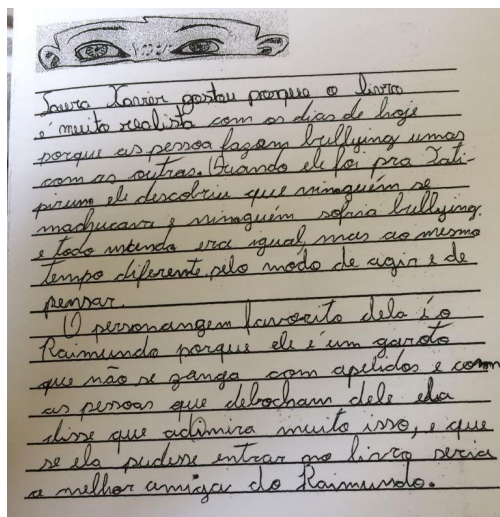 Laura Xavier gostou porque o livro
é muito realista com os dias de hoje
porque as pessoa fazem bullying umas
com as outras. Quando ele foi pra Tati-
pirum ele descobriu que ninguém se
machucava e ninguém sofria bullying.
e todo mundo era igual, mas ao mesmo
tempo diferente, pelo modo de agir e de
pensar.
O personangem favorito dela é o
Raimundo porque ele é um garoto
que não se zanga com apelidos e com
as pessoas que debocham dele ela
disse que adimira muito isso, e que
se ela pudesse entrar no livro seria
a melhor amiga do Raimundo.